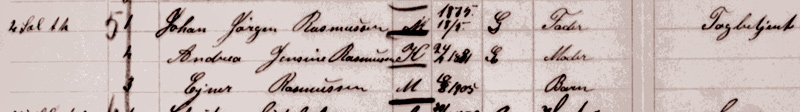 2 Sal th 5 1 Johan Jörgen Rasmussen M 1875 18/5 G Fader Togbetjent
2 Andrea Jensine Rasmussen K 1881 G Moder
3 Ejner Rasmussen M 1905 Barn